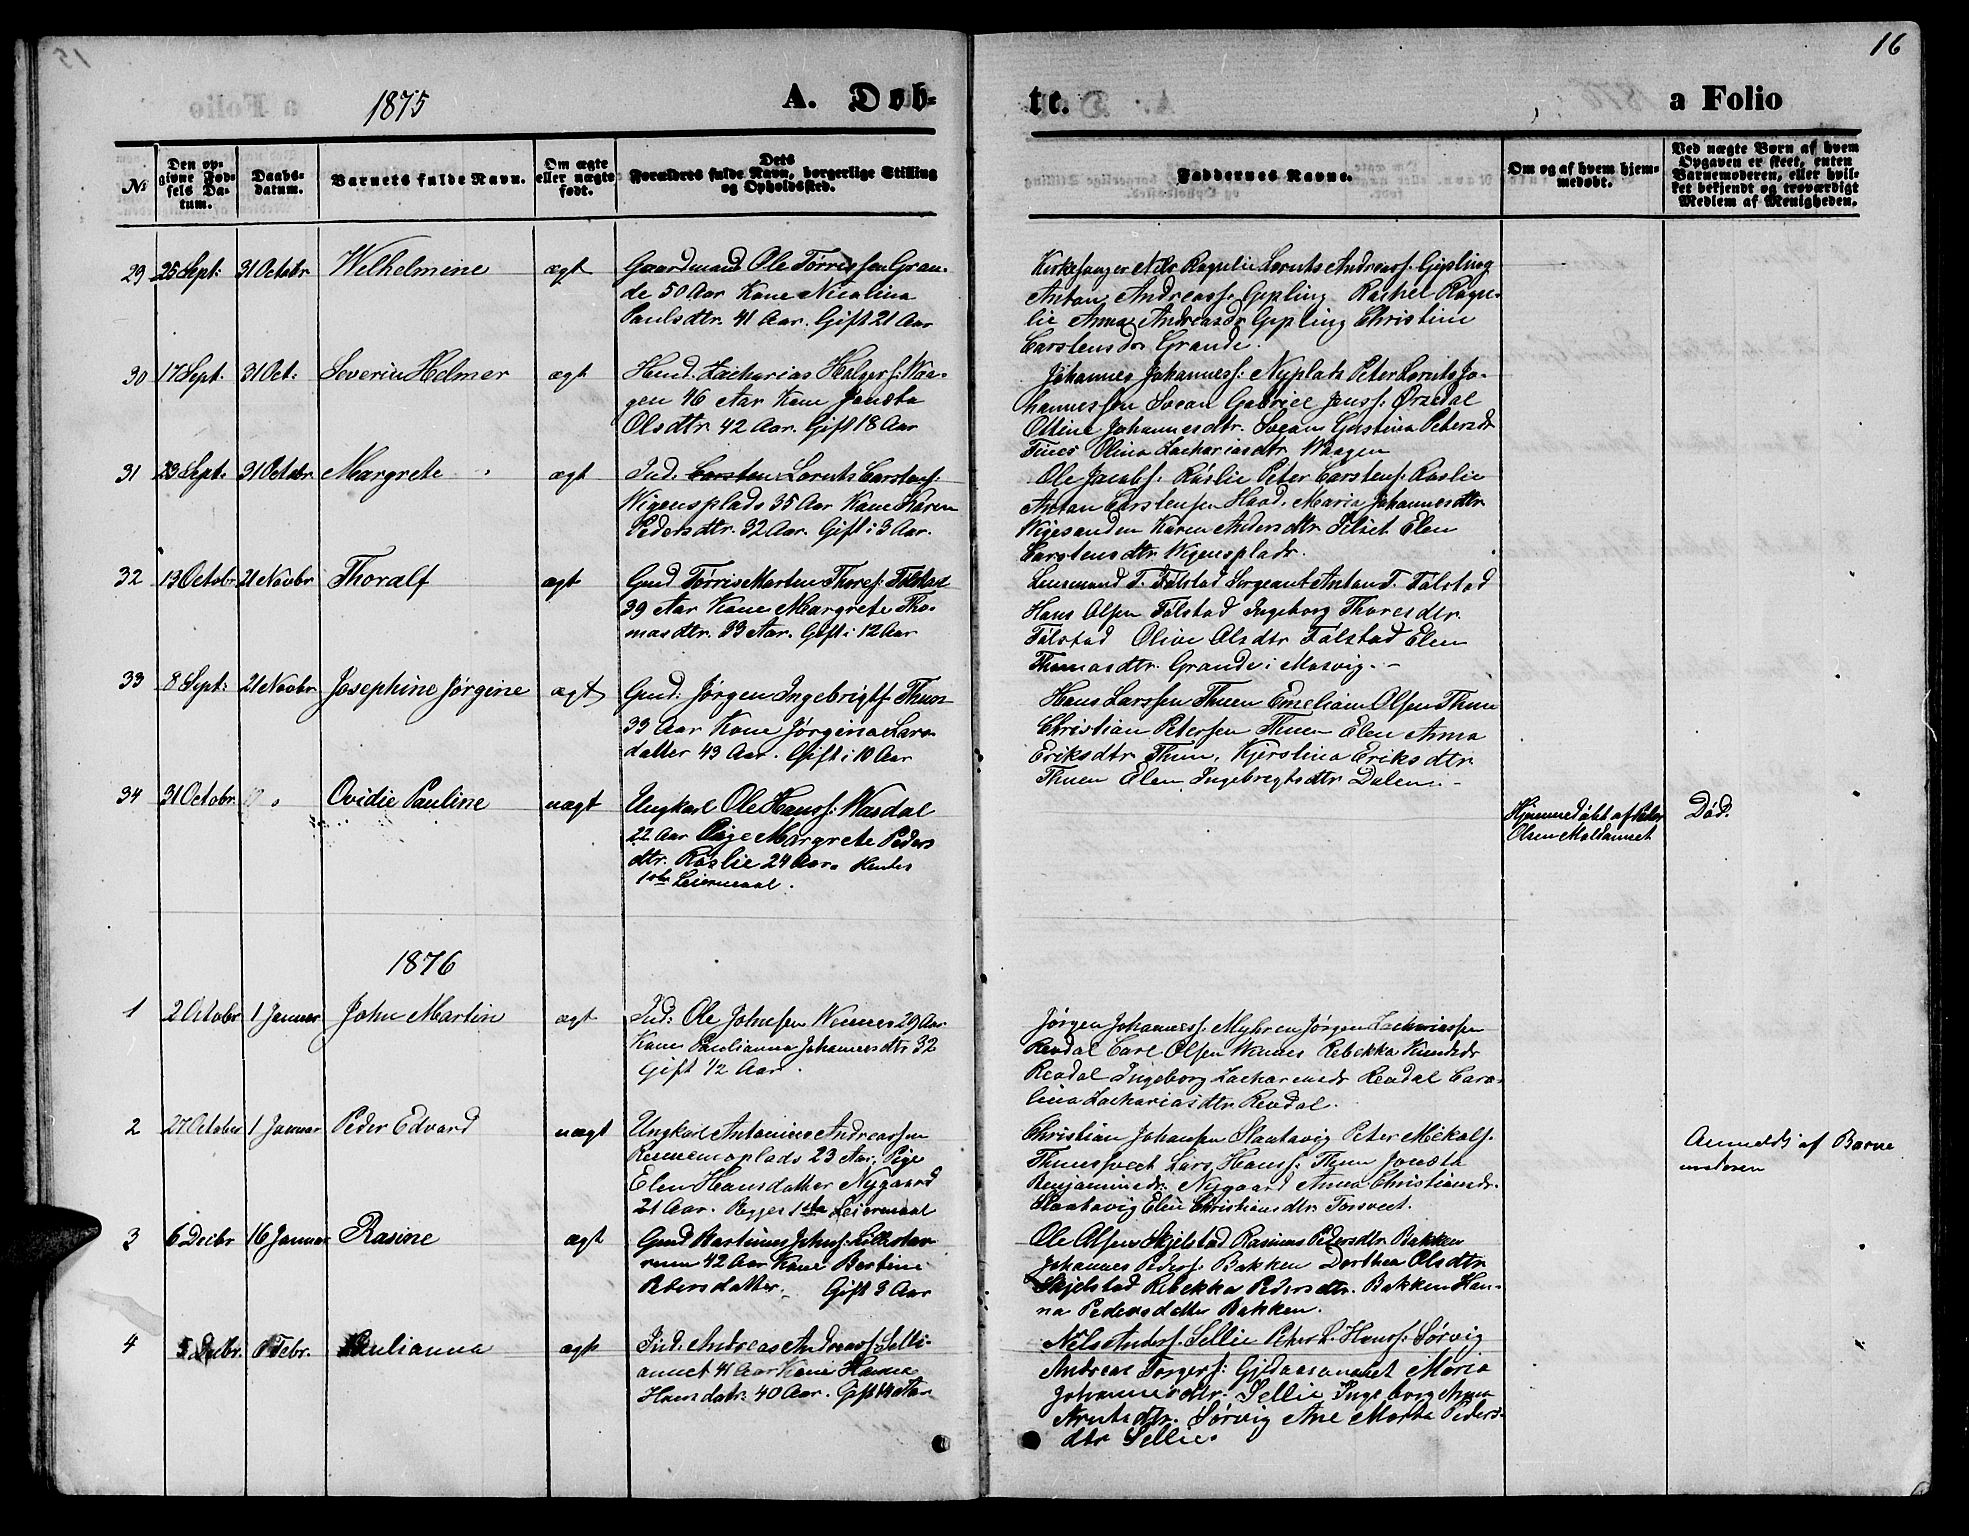 16
1875
A. Døb-
te.
a Folio
No
Den op-
givne Fød-
sels Da-
tum.
Daabs-
datum.
Barnets fulde Navn.
Om ægte
eller uægte
født.
Dets
Forældres fulde Navn, borgerlige Stilling
og Opholdssted.
Faddernes Navne.
Om og af hvem hjem-
medøbt.
Ved uægte Børn af hvem
Opgaven er skeet, enten
Barnemoderen, eller hvil-
ket bekjendt og troværdigt
Medlem af Menigheden.
29 25 Sept: 31 Octobr Wilhelmine ægt Gaardmand Ole Tørrissen Gran-
de 50 Aar Kone Nicolina
Paulsdtr. 41 Aar. Gift 21 Aar
Kirkesanger Nils Ragnlie Lornts Andreass: Gipling
Anton Andreass: Gipling Rachel Ragn-
lie Anna Andreasdr Gipling Christine
Carstensdr Grande.
30 17 Sept. 31 Oct: Severin Helmer ægt Huud. Zacharias Holgers: Waa-
gen 46 Aar Kone Jonetta
Olsdtr. 42 Aar. Gift 18 Aar
Johannes Johanness: Nyplads Peter Lornts Jo-
hannessen Svean Gabriel Jenss: Ørsdal
Oline Johannesdtr. Svean Gustina Petersdr
Tines Olina Zachariasdtr Waagen
31 23 Sept. 31 Octobr Margrete ægt Ind. Carsten Lornts Carstens:
Wigensplads 35 Aar Kone Karen
Pedersdtr. 32 Aar. Gift i 3 Aar.
Ole Jacobs: Røslie Peter Carstens: Røslie
Anton Carstensen Haad. Maria Johannesdtr
Wigesanden Karen Andersdtr Pilset Elen
Carstensdtr Wigensplads.
32 13 Octobr 21 Novbr Thoralf ægt Gmd Tørris Morten Thores: Følstad
39 Aar Kone Margrete Tho-
masdtr. 33 Aar. Gift i 12 Aar
Lensmand T. Følstad Sergeant Anton T. Følstad
Hans Olsen Følstad Ingeborg Thoresdtr.
Følstad Oline Olsdtr Følstad Elen
Thomasdtr. Grande i Mosvig.
33 8 Sept: 21 Novbr Josephine Jørgine ægt Gmd: Jørgen Ingebrigts: Thuen
33 Aar Kone Jørgina Lars-
datter 43 Aar. Gift i 10 Aar
Hans Larssen Thuen Emelian Olsen Thun
Christian Petersen Thuen Elen Anna
Eriksdtr Thun, Kjerstina Eriksdtr
Thuen Elen Ingebrigtsdtr Dalen
34 31 Octobr Ovidie Pauline uægt Ungkarl Ole Hanss: Wasdal
22 Aar Pige Margrete Peders
dtr. Røslie 24 Aar. Hendes
1ste Leiermaal.
Hjemmedøbt af Peter
Olsen Moldaunet
Død.
1876
1 2 Octobr 1 Januar John Martin ægt Ind: Ole Johnsen Wennes 29 Aar
Kone Paulianna Johannesdtr 32
Gift 1/2 Aar.
Jørgen Johanness: Myhren Jørgen Zachariassen
Reodal Carl Olsen Wennes Rebekka Knudsdr
Reodal Ingeborg Zachariasdr Reodal Caro-
lina Zachariasdtr Reodal.
2 27 October 1 Januar Peder Edvard uægt Ungkarl Antonius Andreassen
23 Aar. Pige
Elen Hansdatter Nygaard
21 Aar. Begges 1ste Leiermaal
Christian Johansen Slaatavig Peter Mikals:
Thunsveet Lars Hanss: Thun Jonetta
Benjaminsdr. Nygaard Anna Christiansdr.
Slaatavig Elen Christiansdtr Torsveet.
Anmeldt af Barne
moderen
3 6 Decbr 16 Januar Rasine ægt Gmd Martinus Johns: Lillestør
reen 42 Aar Kone Bertine
Petersdatter. Gift 3 Aar
Ole Olsen Skjelstad Rasinus Pedersdtr. Bakken
Johannes Peders: Bakken Dorthea Olsdtr
Skjelstad Rebekka Pedersdtr. Bakken Han-
na Pedersdatter Bakken.
4 5 Decbr. 6 Febr. Paulianna ægt Ind: Andreas Andreass: Selli-
aunet 41 Aar Kone Hanna
Hansdatr. 40 Aar. Gift 14 Aar
Nels Anders: Sellie Peter L. Hanss: Sørvig
Andreas Torgers: Maria
Johannesdtr. Sellie Ingeborg Anna
Arntsdtr. Sørvig Ane Marta Peders-
dtr Sellie.